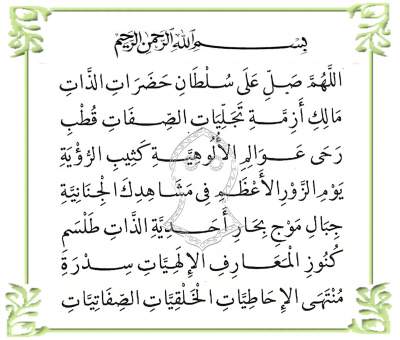 بِسْمِ اللهِ الرَّحْمنِ الرَّحِيْمِ
اَللَّهُمَّ صَلِّ عَلَى سُلْطَانِ حَضَرَاتِ الذَّاتِ
مَالِكِ أَزِمَّةِ تَجَلِّيَاتِ الصِّفَاتِ قُطْبِ
رَحَى عَوَالِمِ الأُلُوهِيَّةِ كَثِيبِ الرُّؤْيَةِ
يَوْمِ الزَّوْرِ الأَعْظَمِ فِي مَشَاهِدِكَ الْجِنَانِيَّةِ
جِبَالِ مَوْجِ بِحَارِ أَحَدِيَّةِ الذَّاتِ طَلْسَمِ
كُنُوزِ الْمَعَارِفِ الإِلَهِيَّاتِ سِدْرَةِ
مُنْتَهَى الإِحَاطِيَّاتِ الْخَلْقِيَّاتِ الصِّفَاتِيَّاتِ